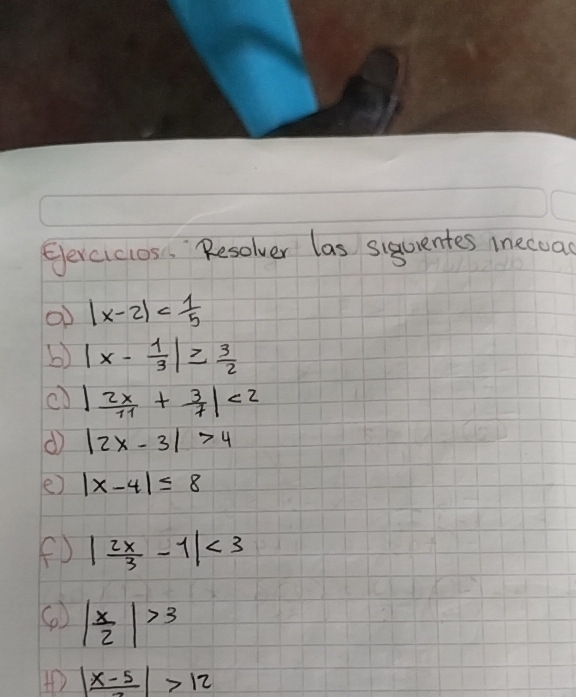 Ejercicios. Resolver las siguientes
a) |x-2| < 1/5
b) |x - 1/3| ≥ 3/2
c) |2x/11 + 3/7| < 2
d) |2x - 3| > 4
e) |x-4| ≤ 8
f) |2x/3 - 1| < 3
G) |x/2| > 3
H) |x-5| > 12